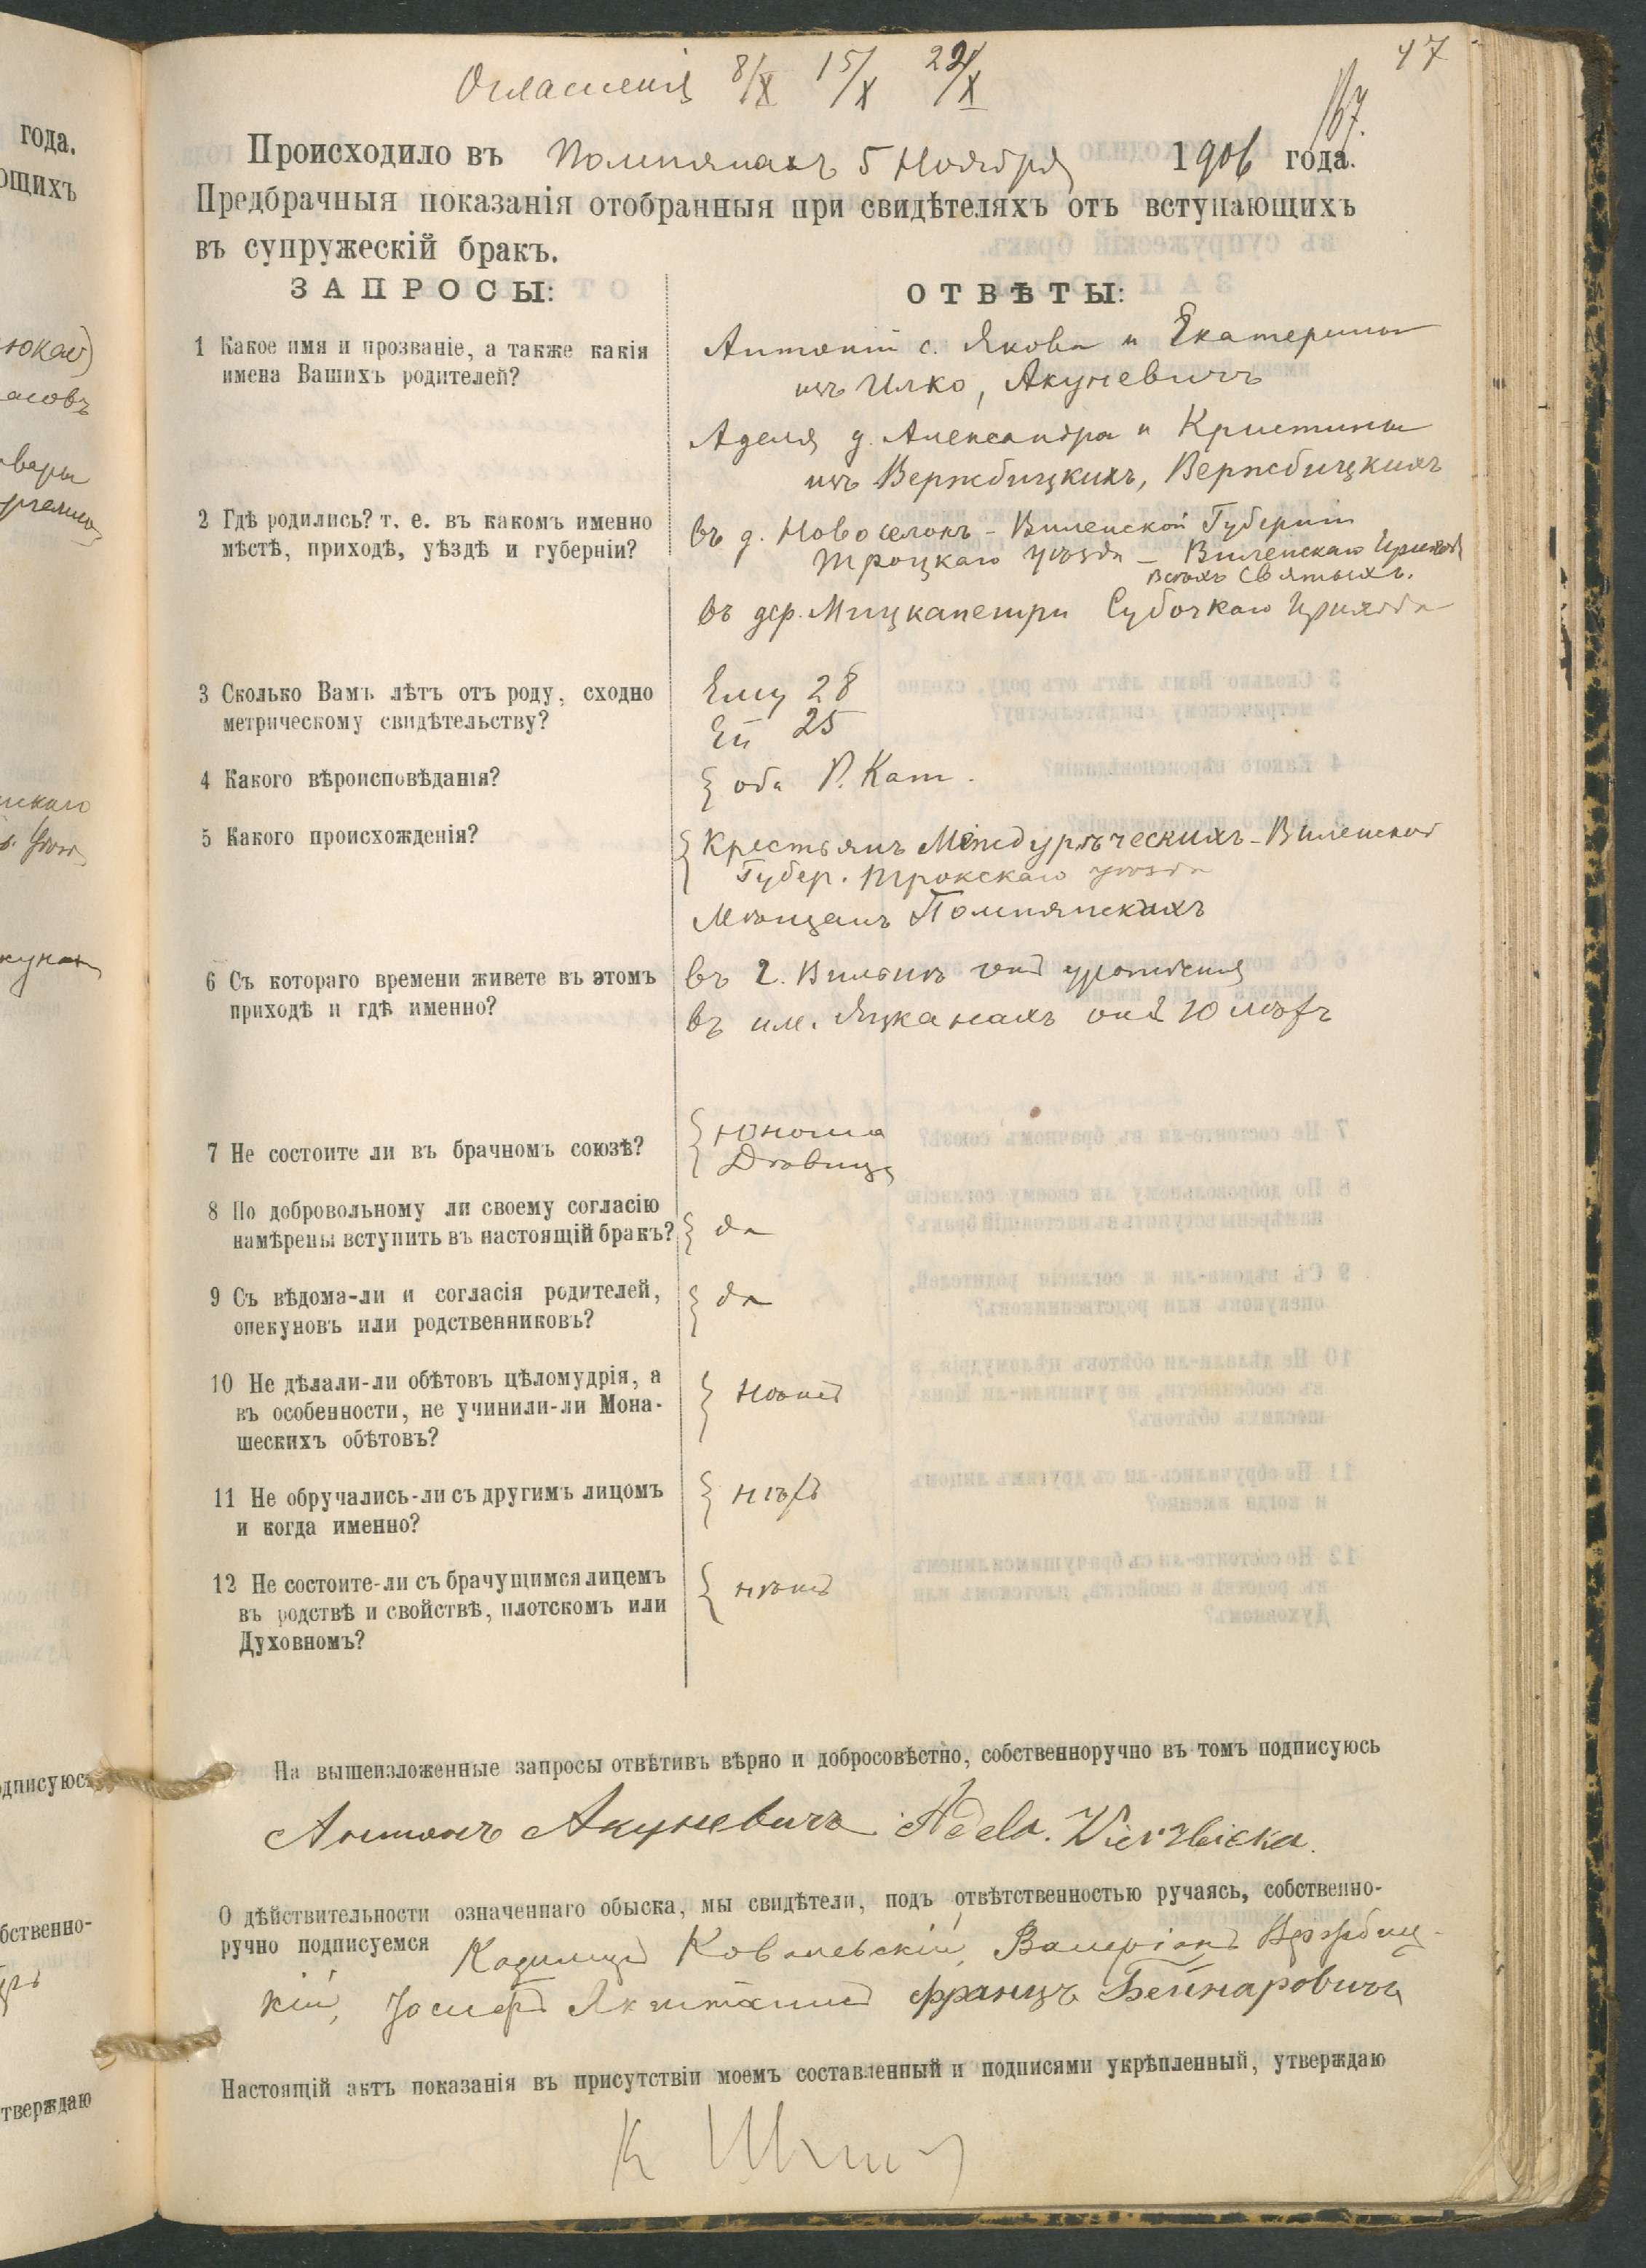 47
Оглашенія 8/X 15/X 22/X
167.
Происходило въ Помпянахъ 5 Ноября 1906 года.
Предбрачныя показанія отобранныя при свидѣтеляхъ отъ вступающихъ
въ супружескій бракъ.
ЗАПРОСЫ: ОТВѢТЫ:
1 Какое имя и прозваніе, а также какія
имена Вашихъ родителей?
Антоній с. Якова и Екатерины
изъ Илко, Акуневичъ
Аделя д. Александра и Кристины
изъ Вержбицкихъ, Вержбицкихъ
2 Гдѣ родились? т. е. въ какомъ именно
мѣстѣ, приходѣ, уѣздѣ и губерніи?
въ д. Новоселокъ - Виленской Губерніи
Троцкаго уѣзда - Виленскаго Прихода
Всѣхъ Святыхъ.
въ дер. Мицкапетри Субочкаго Прихода
3 Сколько Вамъ лѣтъ отъ роду, сходно
метрическому свидѣтельству?
Ему 28
Ей 25
4 Какого вѣроисповѣданія?
оба Р. Кат.
5 Какого происхожденія?
Крестьянъ Междурѣческихъ - Виленской
Губер. Трокскаго уѣзда
Мѣщанъ Помпянскихъ
6 Съ котораго времени живете въ этомъ
приходѣ и гдѣ именно?
въ г. Вильнѣ отъ урожденія
въ им. Яцканахъ отъ 10 лѣтъ
7 Не состоите ли въ брачномъ союзѣ?
Юноша
Дѣвица
8 По добровольному ли своему согласію
намѣрены вступить въ настоящій бракъ?
да
9 Съ вѣдома-ли и согласія родителей,
опекуновъ или родственниковъ?
да
10 Не дѣлали-ли обѣтовъ цѣломудрія, а
въ особенности, не учинили-ли Мона-
шескихъ обѣтовъ?
Нѣтъ
11 Не обручались-ли съ другимъ лицомъ
и когда именно?
нѣтъ
12 Не состоите-ли съ брачущимся лицемъ
въ родствѣ и свойствѣ, плотскомъ или
Духовномъ?
нѣтъ
На вышеизложенные запросы отвѣтивъ вѣрно и добросовѣстно, собственноручно въ томъ подписуюсь
Антонъ Акуневичъ Adela. Wierzbicka.
О дѣйствительности означеннаго обыска, мы свидѣтели, подъ отвѣтственностью ручаясь, собственно-
ручно подписуемся Казимиръ Ковалевскій, Валеріанъ Вержбиц-
кій, Іосифъ Францъ Бейнаровичъ
Настоящій актъ показанія въ присутствіи моемъ составленный и подписями укрѣпленный, утверждаю
К